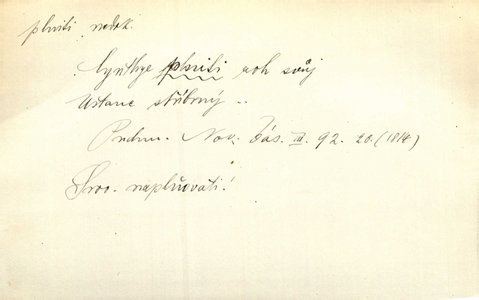 plniti nedok.
Cynthye plniti roh svůj
Ustane stříbrný ..
Puchm. Nov. Bás. III. 92. 20. (1814)
Srov. naplňovati!